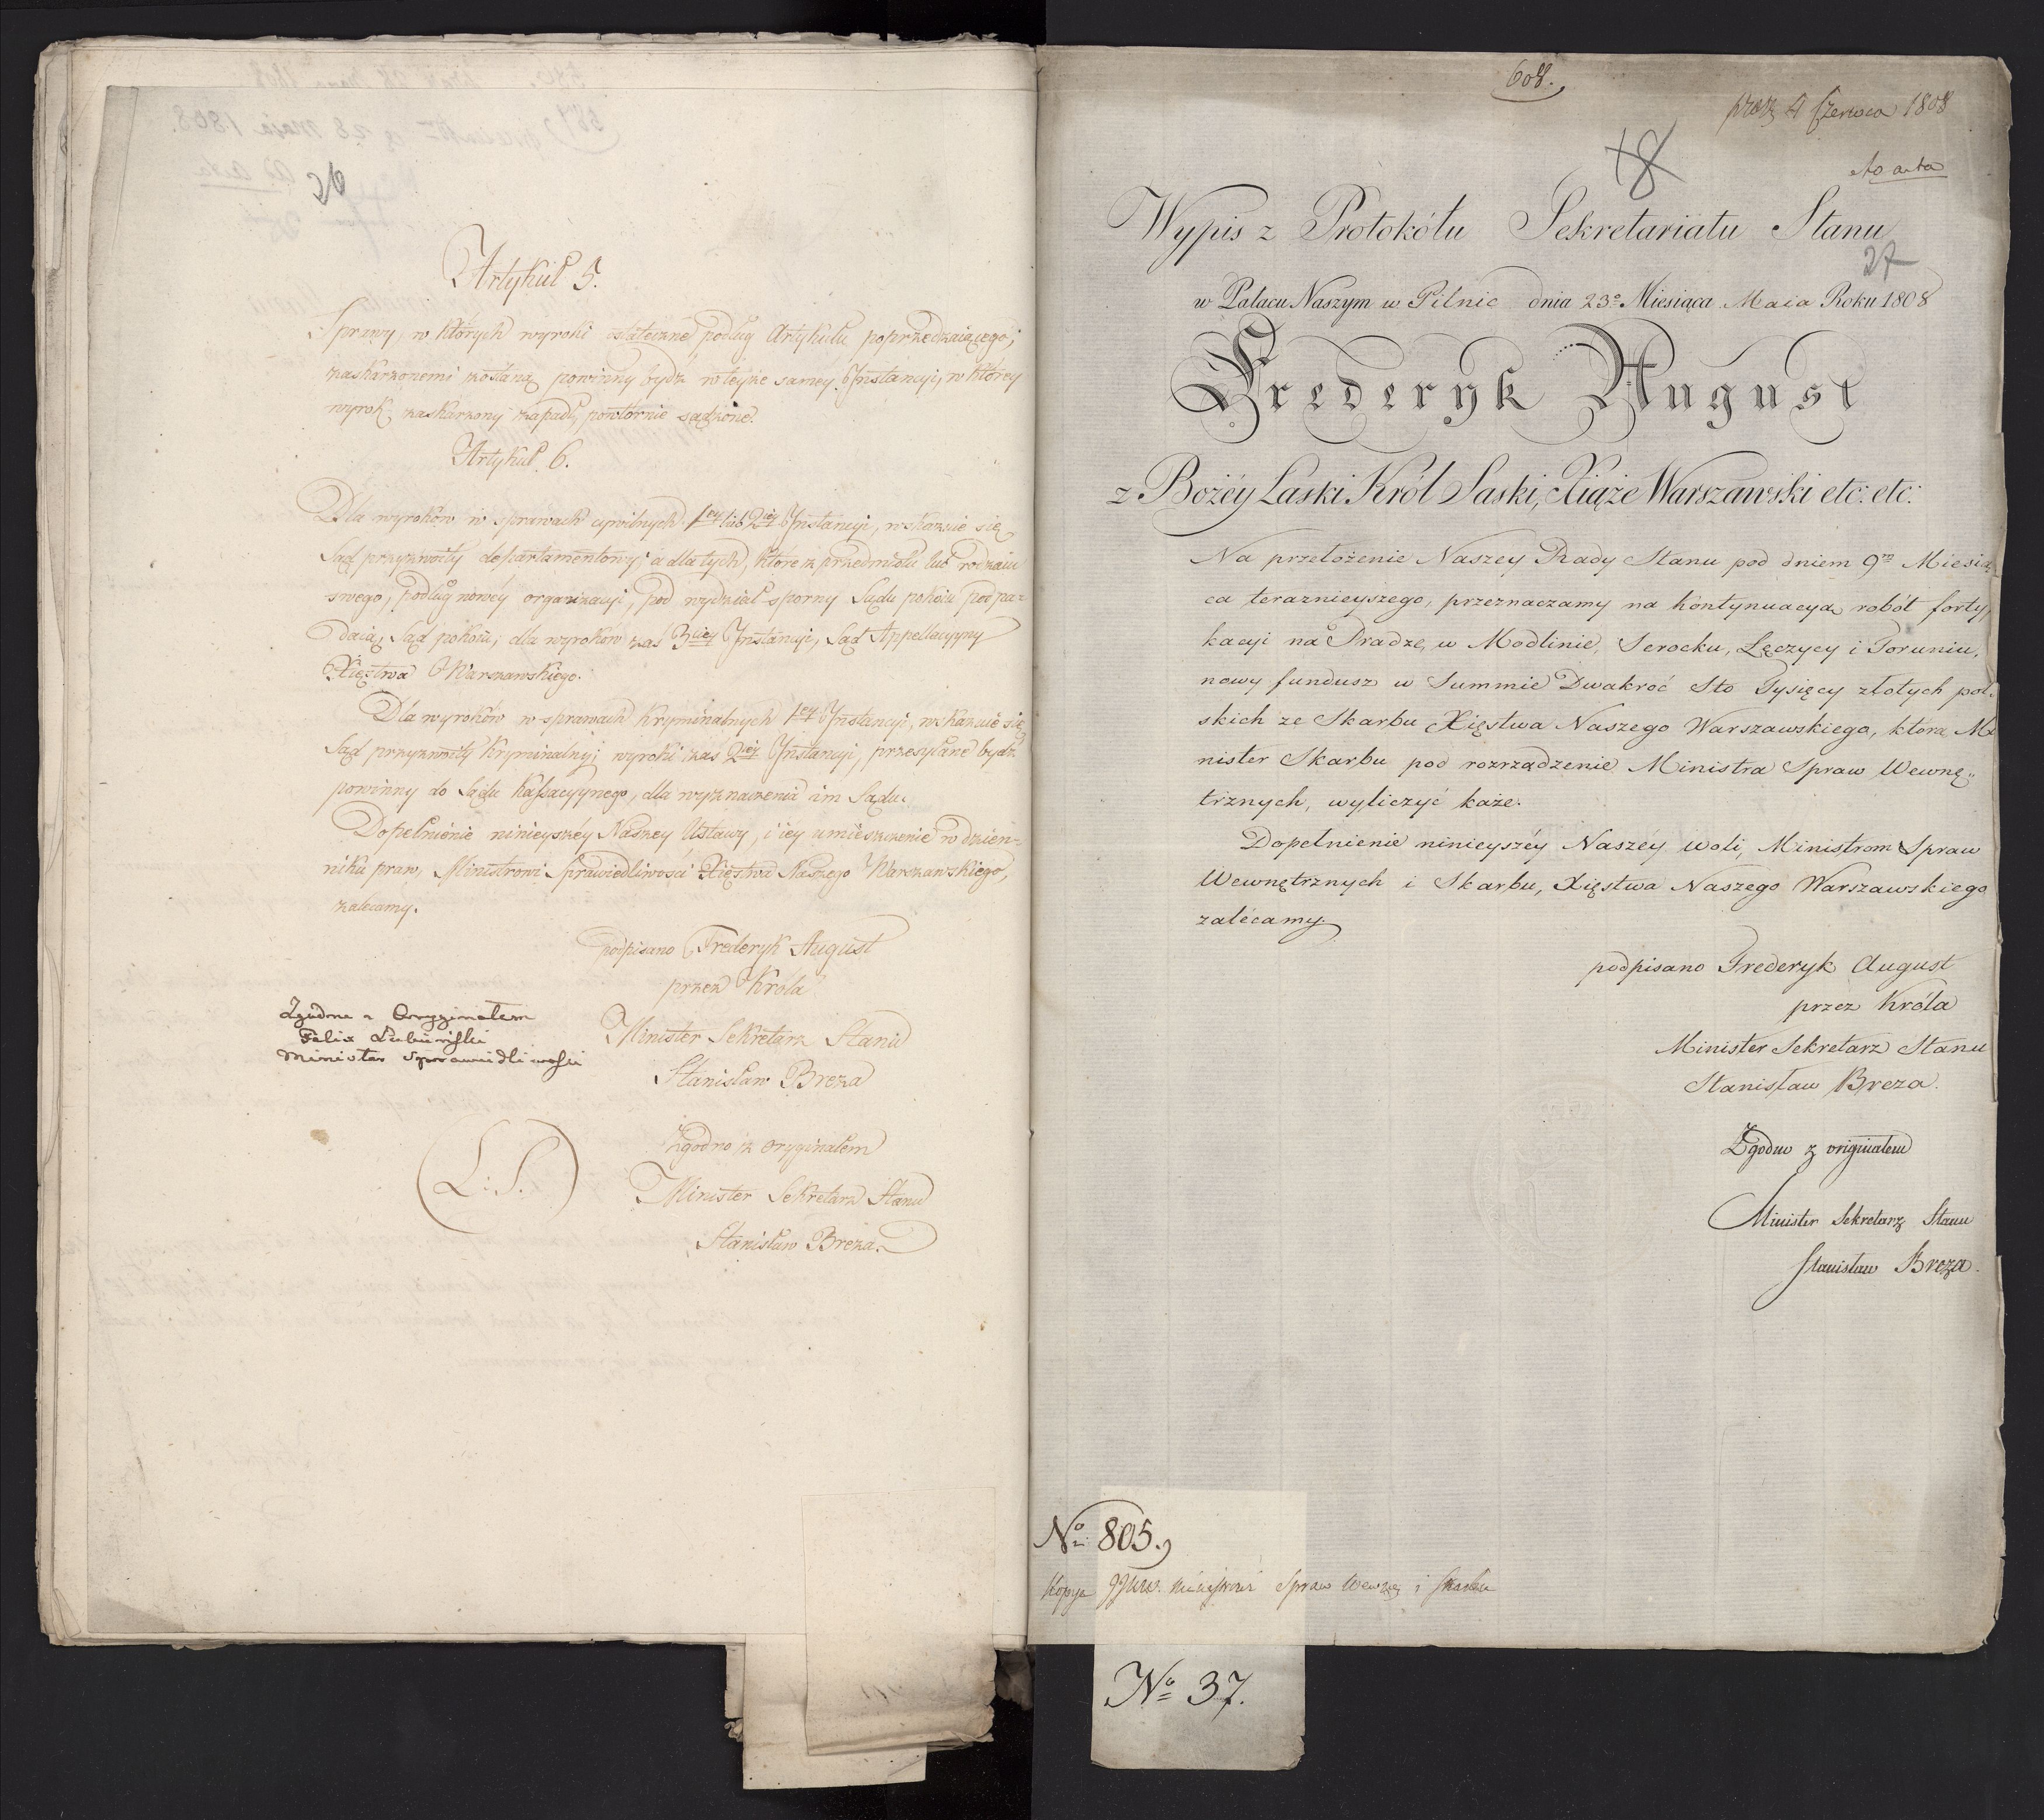 26
Artykuł 5.
Sprawy, w których wyroki ostateczne podług Artykułu poprzedzaiącego,
zaskarżonemi zostaną powinny bydź w teyże samey Instancyi, w którey
wyrok zaskarżony zapadł, powtórnie sądzone.
Artykuł 6.
Dla wyroków w sprawach cywilnych 1ey lub 2iey Instancyi, wskazuie się
Sąd przyzwoity departamentowy; a dla tych, które z przedmiotu lub rodzaiu
swego, podług nowéy organizacyi, pod wydział sporny Sądu pokoiu podpa-
daią, Sąd pokoiu; dla wyroków zaś 3ciey Instancyi, Sąd Appellacyyny
Xięstwa Warszawskiego.
Dla wyroków w sprawach kryminalnych 1ey Instancyi, wskazuie się
Sąd przyzwoity Kryminalny; wyroki zaś 2iey Instancyi, przesyłane bydź
powinny do Sądu Kassacyynego, dla wyznaczenia im Sądu.
Dopełnienie ninieyszéy Naszey Ustawy, i iéy umieszczenie w dzien-
niku praw, Ministrowi Sprawiedliwości Xięstwa Naszego Warszawskiego,
zalecamy.
podpisano Frederyk August
przez Króla
Minister Sekretarz Stanu
Stanisław Breza
Zgodno z Oryginałem
Felix Łubieński
Minister Sprawiedliwości
(L: S.)
Zgodno z oryginałem
Minister Sekretarz Stanu
Stanisław Breza.
608.
4 Czerwca 1808
ad acta
18
Wypis z Protokółu Sekretariatu Stanu
27
w Pałacu Naszym w Pilnic dnia 23o Miesiąca Maia Roku 1808
Frederyk August
z Bożéy Łaski Król Saski, Xiąże Warszawski etc: etc:
Na przełożenie Naszey Rady Stanu pod dniem 9m Miesią
ca teraznieyszego, przeznaczamy na kontynuacyą robót forty,
kacyi na Pradze, w Modlinie, Serocku, Łęczycy i Toruniu,
nowy fundusz w Summie Dwakroć Sto Tysięcy złotych pol-
skich ze Skarbu Xięstwa Naszego Warszawskiego, ktora Mi
nister Skarbu pod rozrządzenie Ministra Spraw Wewnę„
trznych, wyliczyć każe.
Dopełnienie ninieyszéy Naszéy woli, Ministrom Spraw
Wewnętrznych i Skarbu, Xięstwa Naszego Warszawskiego
zalécamy.
podpisano Frederyk August
przez Króla
Minister Sekretarz Stanu
Stanisław Breza.
Zgodno z originałem
Minister Sekretarz Stanu
Stanisław Breza.
No: 805.
Kopya Spraw Wewnę i Skarbu
No 37.